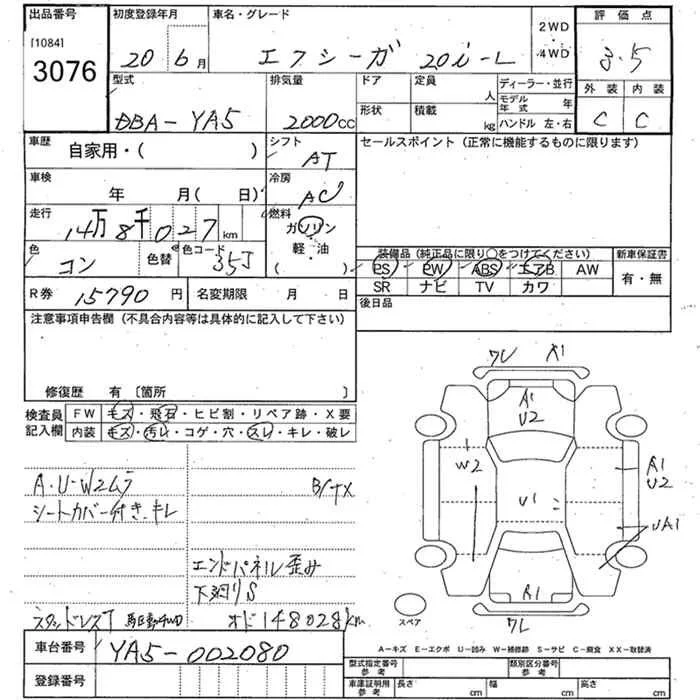 出品番号
[1084]
3076
初度登録年月 車名・グレード
20 6月 エクシーガ 20i-L
2WD
4WD
評価点
3.5
外装 内装
C C
型式 排気量 ドア 定員 ディーラー・並行
DBA-YA5 2000cc 人 モデル年式 年
形状 積載 kg ハンドル 左・右
車歴 自家用・( ) シフト AT
セールスポイント(正常に機能するものに限ります)
車検 年 月( 日) 冷房 AC
走行 14万8千027km 燃料 ガソリン
軽・油
( )
色 コン 色替 色コード 35J
装備品(純正品に限り○をつけてください) 新車保証書
PS PW ABS エアB AW 有・無
SR ナビ TV カワ
R券 15790円 名変期限 月 日
後日品
注意事項申告欄(不具合内容等は具体的に記入して下さい)
修復歴 有 〔箇所 〕
検査員 FW キズ・飛石・ヒビ割・リペア跡・X要
記入欄 内装 キズ・汚レ・コゲ・穴・スレ・キレ・破レ
A・U・W2ムラ
シートカバー付き、キレ
エンドパネル歪み
下廻りS
スタッドレスT オド148028km
ワレ A1
A1
U2
W2
U1
A1
U2
UA1
A1
ワレ
スペア
A-キズ E-エクボ U-凹み W-補修跡 S-サビ C-腐食 XX-取替済
車台番号 YA5-002080
登録番号
型式指定番号 参考 類別区分番号 参考
車庫証明用 参考 長さ cm 幅 cm 高さ cm